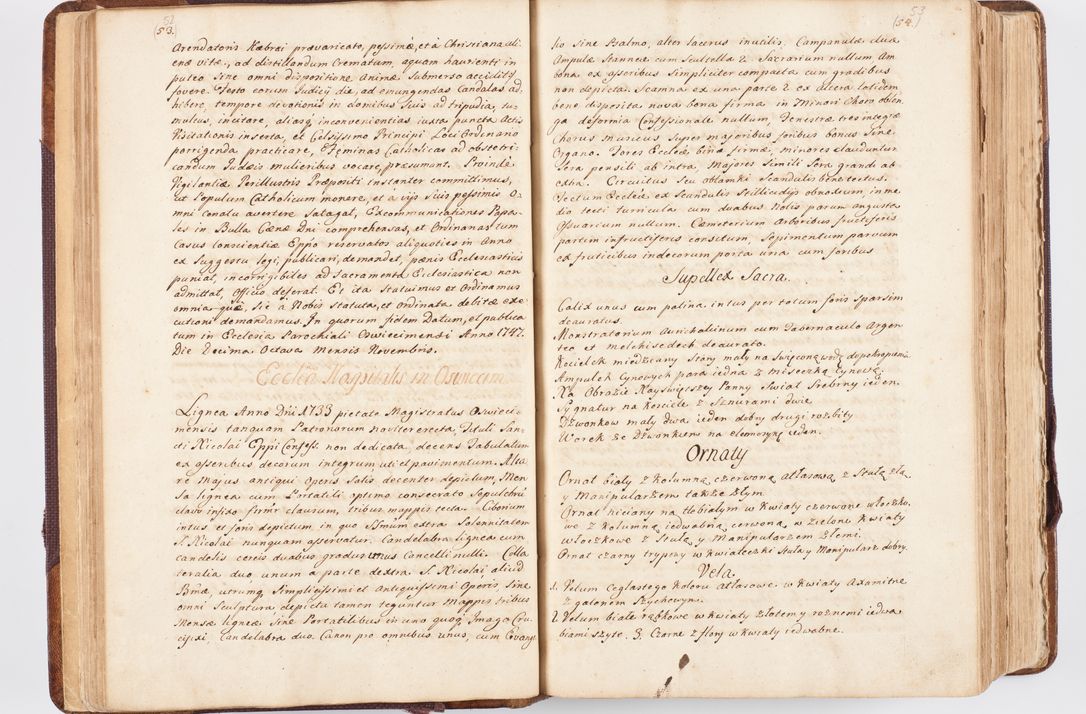 52
(53.)
Arendatoris Hæbræi prævaricato, pessimæ, et à Christiana ali-
enæ vitæ, ad distillandum Crematum, aquam haurienti in
puteo sine omni dispositione animæ submerso accidit,
fovere. Festo eorum Judicy die, ad emungendas Candelas ad-
hibere, tempore devotionis in domibus suis ad tripudia, tu-
multus, incitare, aliasq inconvenientias iuxta puncta Actis
Visitationis inserta, et Celsissimo Principi Loci Ordinario
porrigenda practicare, Fæminas Catholicas ad obstetri-
candum Judæis mulieribus vocare, præsumant. Proinde
Vigilantiæ Perillustris Præpositi instanter committimus,
ut Populum Catholicum monere, et à vijs suis pessimis o-
mni conatu avertere satagat, Excommunicationes Papa-
les in Bulla Cænæ Dni comprehensas, et Ordinarias tum
Casus conscientiæ Eppo reservatos aliquoties in Anno
ex Suggestu legi, publicari, demandet, pænis Ecclesiasticis
puniat, incorrigibiles ad Sacramenta Ecclesiastica non
admittat, Officio deferat. Et ita Statuimus et Ordinamus
omnia quæ, sic à Nobis statuta, et ordinata debitæ exe-
cutioni demandamus. In quorum fidem Datum, et publica-
tum in Ecclesia Parochiali Oswiecimensi Anno 1747.
Die Decima Octava Mensis Novembris.
Ecclia Hospitalis in Oswiecim
Lignea Anno Dni 1733 pietate Magistratus Oswieci-
mensis tanquam Patronorum noviter erecta, Tituli San-
cti Nicolai Eppi Confess. non dedicata, decens Tabulatum
ex asseribus decorum integrum, uti et pavimentum. Alta-
re Majus antiqui Operis satis decenter depictum, Men-
sa lignea cum Portatili optimo consecrato Sepulchri
clavo infixo firmr clausum, tribus mappis tecta. Ciborium
intus et foris depictum in quo SSmum extra Solennitatem
S. Nicolai nunquam asservatur. Candelabra lignea cum
candelis cereis duabus gradus unus Cancelli nulli. Colla-
teralia duo unum a parte dextra S. Nicolai aliud
Bmæ, utrumq Simplicissimi et antiquissimi Operis sine
omni Sculptura depicta tamen teguntur mappis tribus
Mensæ ligneæ sine Portatilibus in uno quoq Imago Cru-
cifixi, Candelabra duo. Canon pro omnibus unus, cum Evange-
53
(54.)
lio sine Psalmo, alter lacerus inutilis. Campanulæ duæ
Ampulæ Stanneæ cum Scutella 2. Sacrarium nullum Am-
bona ex asseribus simpliciter compacta cum gradibus
non depicta. Scamna ex una parte 2 ex altera totidem
bene disposita nova bona firma in Minori Choro oblon-
ga deformia Confessionale nullum, Fenestræ tres integræ
Chorus musicus super majoribus foribus bonus sine
Organo. Fores Ecclæ binæ firmæ, minores clauduntur
Sera pensili ab intra, Majores simili Sera grandi ab
extra. Circuitus seu oblamki Scandulis bene tectus.
Tectum Ecclæ ex Scandulis Stillicidijs obnoxium, in me-
dio tecti turricula cum duabus Nolis parum angusta
Ossuarium nullum. Cæmeterium Arboribus fructiferis
partim infructiferis consitum, Sepimentum parvum
ex fruticibus indecorum porta una cum foribus
Supellex Sacra.
Calix unus cum patina intus per totum foris sparsim
deauratus.
Monstratorium Aurichalcinum cum Tabernaculo Argen-
teo et melchisedech deaurato.
Kocielek miedziany stary mały na swięconą wodę do pokropienia
Ampułek Cynowych para iedna z miseczką Cynową.
Na Obrazie Nayswiętszey Panny Swiat Srebrny ieden.
Sygnatur na kosciele z Sznurami dwie
Dzwonkow mały dwa ieden dobry drugi rozbity
Worek ze Dzwonkiem na eleemozynę ieden.
Ornaty
Ornat biały z kolumną czerwoną atłasową z Stułą złą
y Manipularzem także złym
Ornat niciany na tłobiałym w kwiaty czerwone włoczko-
we z kolumną iedwabną cerwoną w zielone kwiaty
włoczkowe z Stułą y Manipularzem złemi.
Ornat czarny trypny w kwiateczki Stuła y Manipularz dobry.
Vela.
1. Velum Ceglastego koloru atłasowe w kwiaty Axamitne
z galonem Szychowym.
2. Velum białe rąbkowe w kwiaty złotemy roznemi iedwa-
biami szyte. 3. Czarne z flory w kwiaty iedwabne.